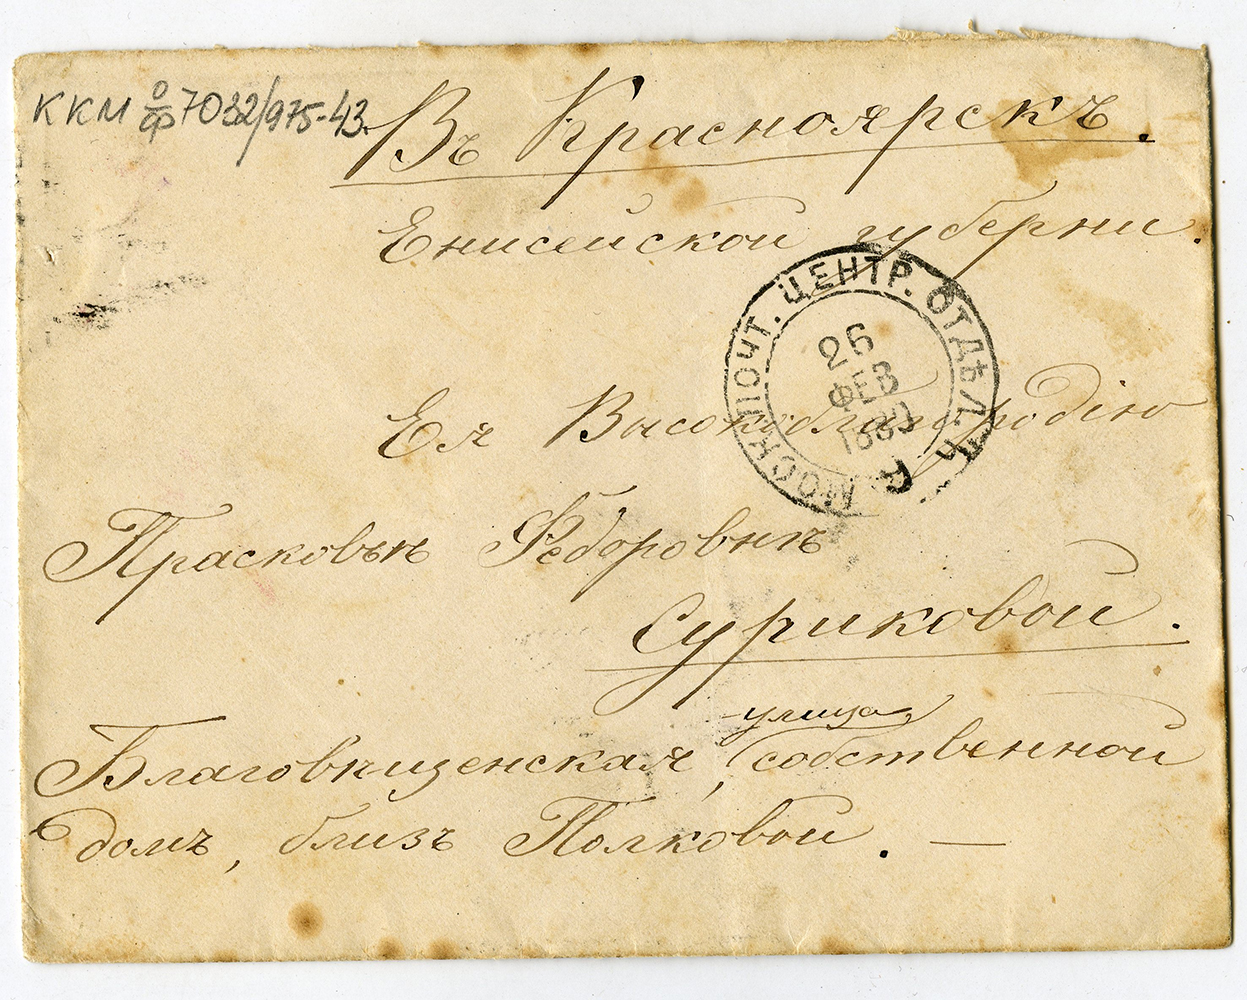 ККМ о/ф 7032/975-43.
Въ Красноярскъ.
Енисейской губерни.
МОСК. ПОЧТ. ЦЕНТР. ОТДѢЛ.
26
ФЕВ
Ея Высокоблагородію
Прасковьѣ Ѳедоровнѣ
Суриковой.
улица
Благовѣщенская, собственной
домъ, близъ Полковой. —